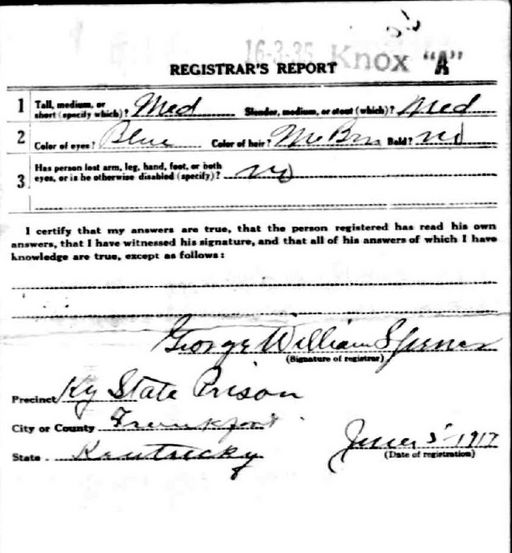 16-3-35 Knox "A"
REGISTRAR'S REPORT
1 Tall, medium, or short (specify which)? Med Slender, medium, or stout (which)? Med
2 Color of eyes? Blue Color of hair? Bald? No
3 Has person lost arm, leg, hand, foot, or both eyes, or is he otherwise disabled (specify)? No
I certify that my answers are true, that the person registered has read his own
answers, that I have witnessed his signature, and that all of his answers of which I have
knowledge are true, except as follows:
George William Spencer
(Signature of registrar)
Precinct Ky State Prison
City or County Frankfort
State Kentucky June 5 1917
(Date of registration)